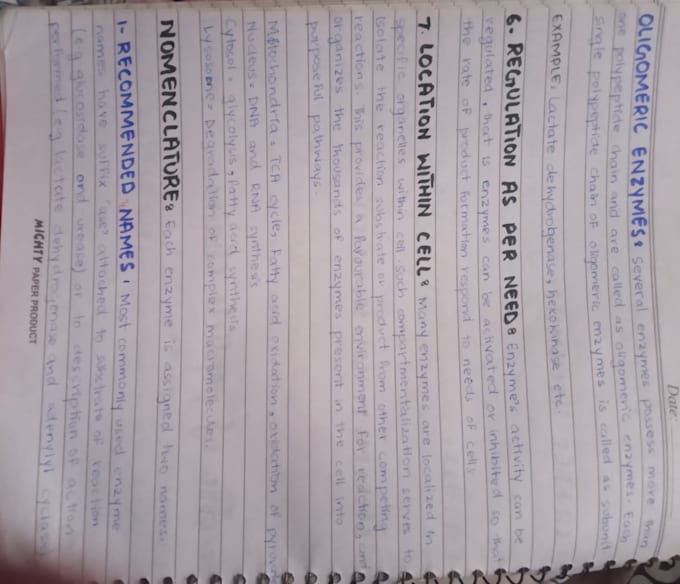 Date:
OLIGOMERIC ENZYMES: Several enzymes possess more than
one polypeptide chain and are called as oligomeric enzymes. Each
single polypeptide chain of oligomeric enzymes is called as subunit
EXAMPLE: Lactate dehydrogenase, hexokinase etc.
6. REGULATION AS PER NEED: Enzyme's activity can be
regulated, that is enzymes can be activated or inhibited so that
the rate of product formation respond to needs of cell.
7. LOCATION WITHIN CELL: Many enzymes are localized in
specific organelles within cell such compartmentalization serves to
isolate the reaction substrate or product from other competing
reactions. This provides a favourable environment for reaction, and
organizes the thousands of enzymes present in the cell into
purposeful pathways.
Mitochondria: TCA cycle, Fatty acid oxidation, oxidation of pyruvate
Nucleus: DNA and RNA synthesis
Cytosol: glycolysis, fatty acid synthesis
Lysosome: Degradation of complex macromolecules.
NOMENCLATURE: Each enzyme is assigned two names.
1- RECOMMENDED NAMES: Most commonly used enzyme
names have suffix "ase" attached to substrate of reaction
(e.g glucosidase and urease) or to description of action
performed (e.g lactate dehydrogenase and adenylyl cyclase)
MIGHTY PAPER PRODUCT